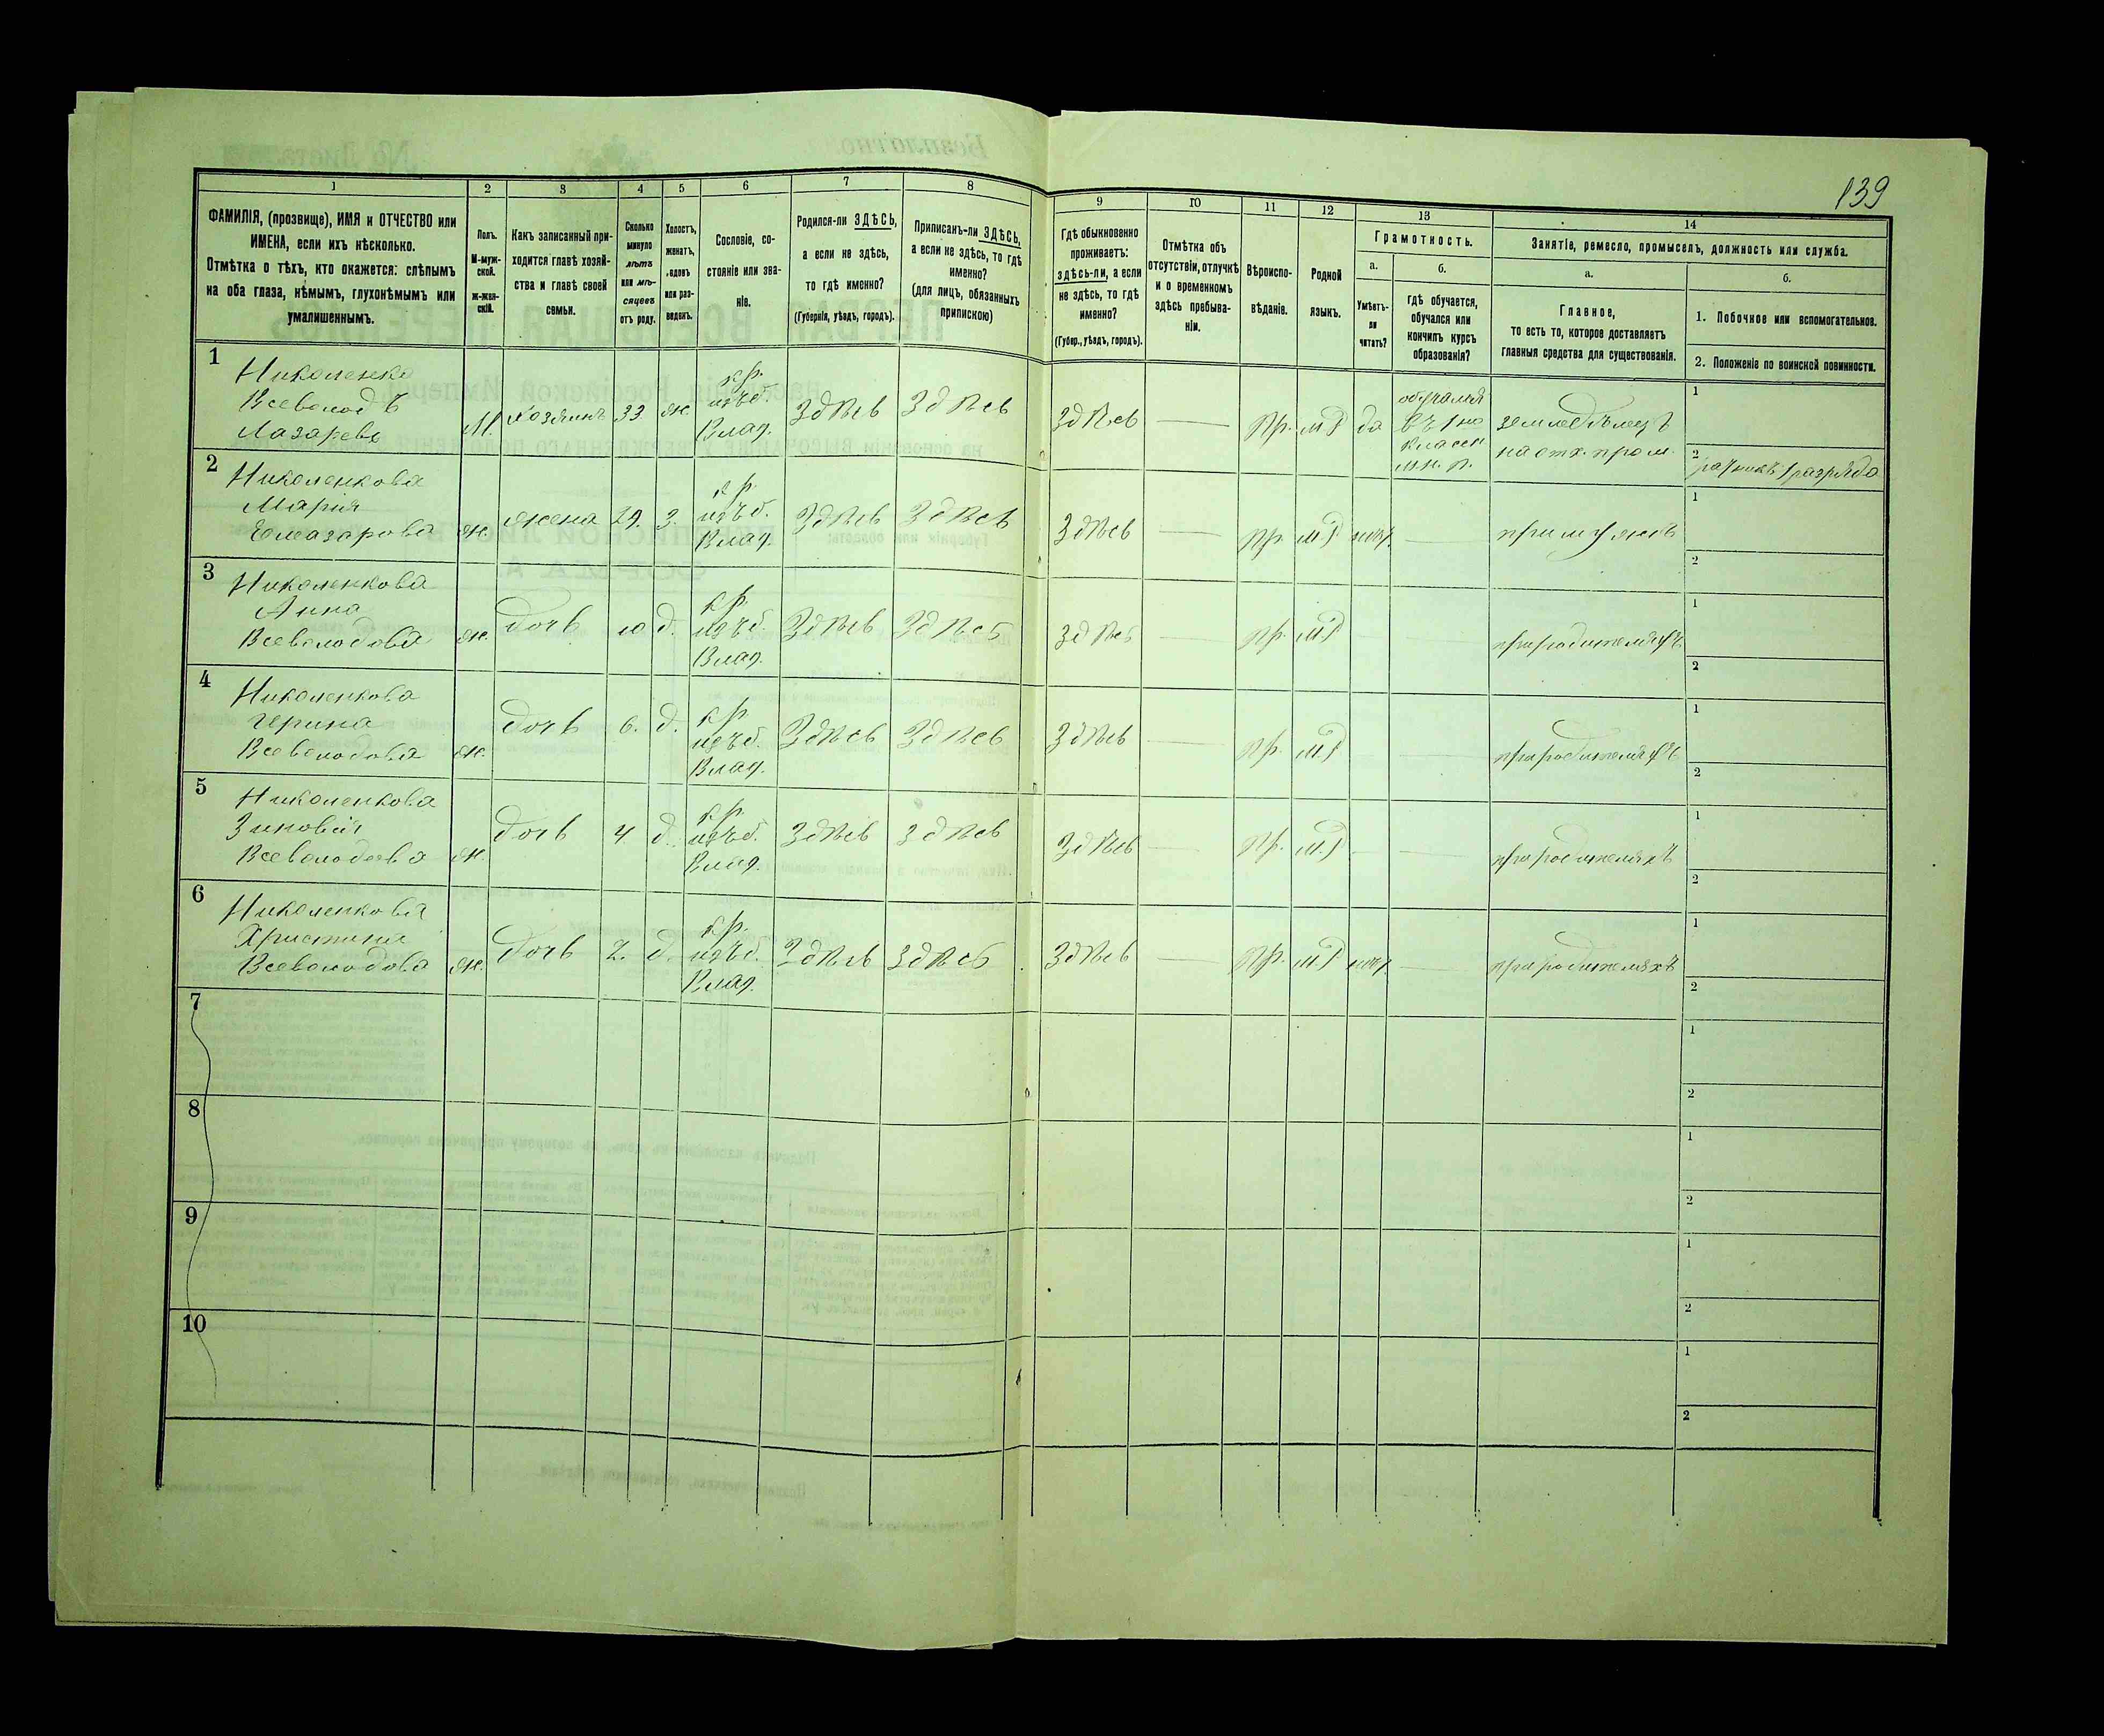 139
1 2 3 4 5 6 7 8 9 10 11 12 13 14
ФАМИЛІЯ, (прозвище), ИМЯ и ОТЧЕСТВО или
ИМЕНА, если ихъ нѣсколько.
Отмѣтка о тѣхъ, кто окажется: слѣпымъ
на оба глаза, нѣмымъ, глухонѣмымъ или
умалишеннымъ.
Полъ.
М-муж-
ской.
ж-жен-
скій.
Какъ записанный при-
ходится главѣ хозяй-
ства и главѣ своей
семьи.
Сколько
минуло
лѣтъ
или мѣ-
сяцевъ
отъ роду.
Холостъ,
женатъ,
вдовъ
или раз-
веденъ.
Сословіе, со-
стояніе или зва-
ніе.
Родился-ли ЗДѢСЬ,
а если не здѣсь,
то гдѣ именно?
(Губернія, уѣздъ, городъ).
Приписанъ-ли ЗДѢСЬ,
а если не здѣсь, то гдѣ
именно?
(для лицъ, обязанныхъ
припискою)
Гдѣ обыкновенно
проживаетъ:
здѣсь-ли, а если
не здѣсь, то гдѣ
именно?
(Губер., уѣздъ, городъ).
Отмѣтка объ
отсутствіи, отлучкѣ
и о временномъ
здѣсь пребыва-
ніи.
Вѣроиспо-
вѣданіе.
Родной
языкъ.
Грамотность.
а.
Умѣетъ-
ли
читать?
б.
Гдѣ обучается,
обучался или
кончилъ курсъ
образованія?
Занятіе, ремесло, промыселъ, должность или служба.
а.
Главное,
то есть то, которое доставляетъ
главныя средства для существованія.
б.
1. Побочное или вспомогательное.
2. Положеніе по воинской повинности.
1
Николенко
Всеволодъ
Лазаревъ
М. хозяинъ 33 ж
кр.
изъб.
Влад.
Здѣсь Здѣсь Здѣсь — пр. м.р да
обучался
въ 1но
классн
мн. п.
земледѣлецъ
на отх. пром.
1
2 ратникъ 1 разряда
2
Николенкова
Марія
Елеазарова
ж. жена 29. З.
кр.
изъб.
Влад.
Здѣсь Здѣсь Здѣсь — пр. м.р нѣт. —
при мужѣ
1
2
3
Николенкова
Анна
Всеволодова
ж. дочь 10 д.
кр.
изъб.
Влад.
Здѣсь Здѣсь Здѣсь — пр. м.р
при родителяхъ
1
2
4
Николенкова
Ирина
Всеволодова
ж. дочь 6. д.
кр.
изъб.
Влад.
Здѣсь Здѣсь Здѣсь — пр. м.р
при родителяхъ
1
2
5
Николенкова
Зиновія
Всеволодова
ж. дочь 4 д.
кр.
изъб.
Влад.
Здѣсь Здѣсь Здѣсь — пр. м.р
при родителяхъ
1
2
6
Николенкова
Христина
Всеволодова
ж. дочь 2. д.
кр.
изъб.
Влад.
Здѣсь Здѣсь Здѣсь — пр. м.р нѣт. —
при родителяхъ
1
2
7
1
2
8
1
2
9
1
2
10
1
2